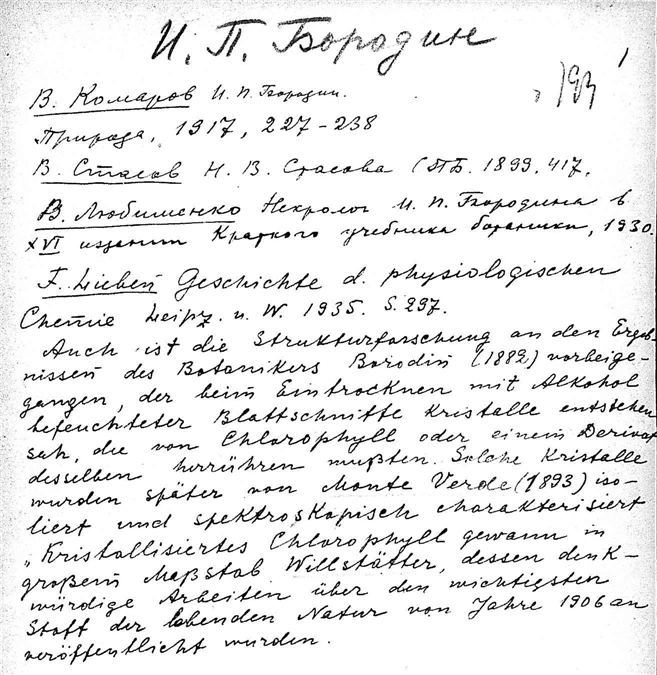 И. П. Бородин
1
В. Комаров И. П. Бородин.
Природа, 1917, 227-238
В. Стасов Н. В. Стасова СПБ. 1899, 417.
В. Любименко Некролог И. П. Бородина в
XVI издании Краткого учебника ботаники, 1930.
F. Lieben Geschichte d. physiologischen
Chemie Leipz. u. W. 1935. S. 297.
Auch ist die Strukturforschung an den Ergeb-
nissen des Botanikers Borodin (1882) vorbeige-
gangen, der beim Eintrocknen mit Alkohol
befeuchteter Blattschnitte Kristalle entstehen
sah, die von Chlorophyll oder einem Derivat
desselben herrühren mußten. Solche Kristalle
wurden später von Monte Verde (1893) iso-
liert und spektroskopisch charakterisiert
„Kristallisiertes Chlorophyll gewann in
großem Maßstab Willstätter, dessen denk-
würdige Arbeiten über den wichtigsten
Stoff der lebenden Natur von Jahre 1906 an
veröffentlicht wurden.